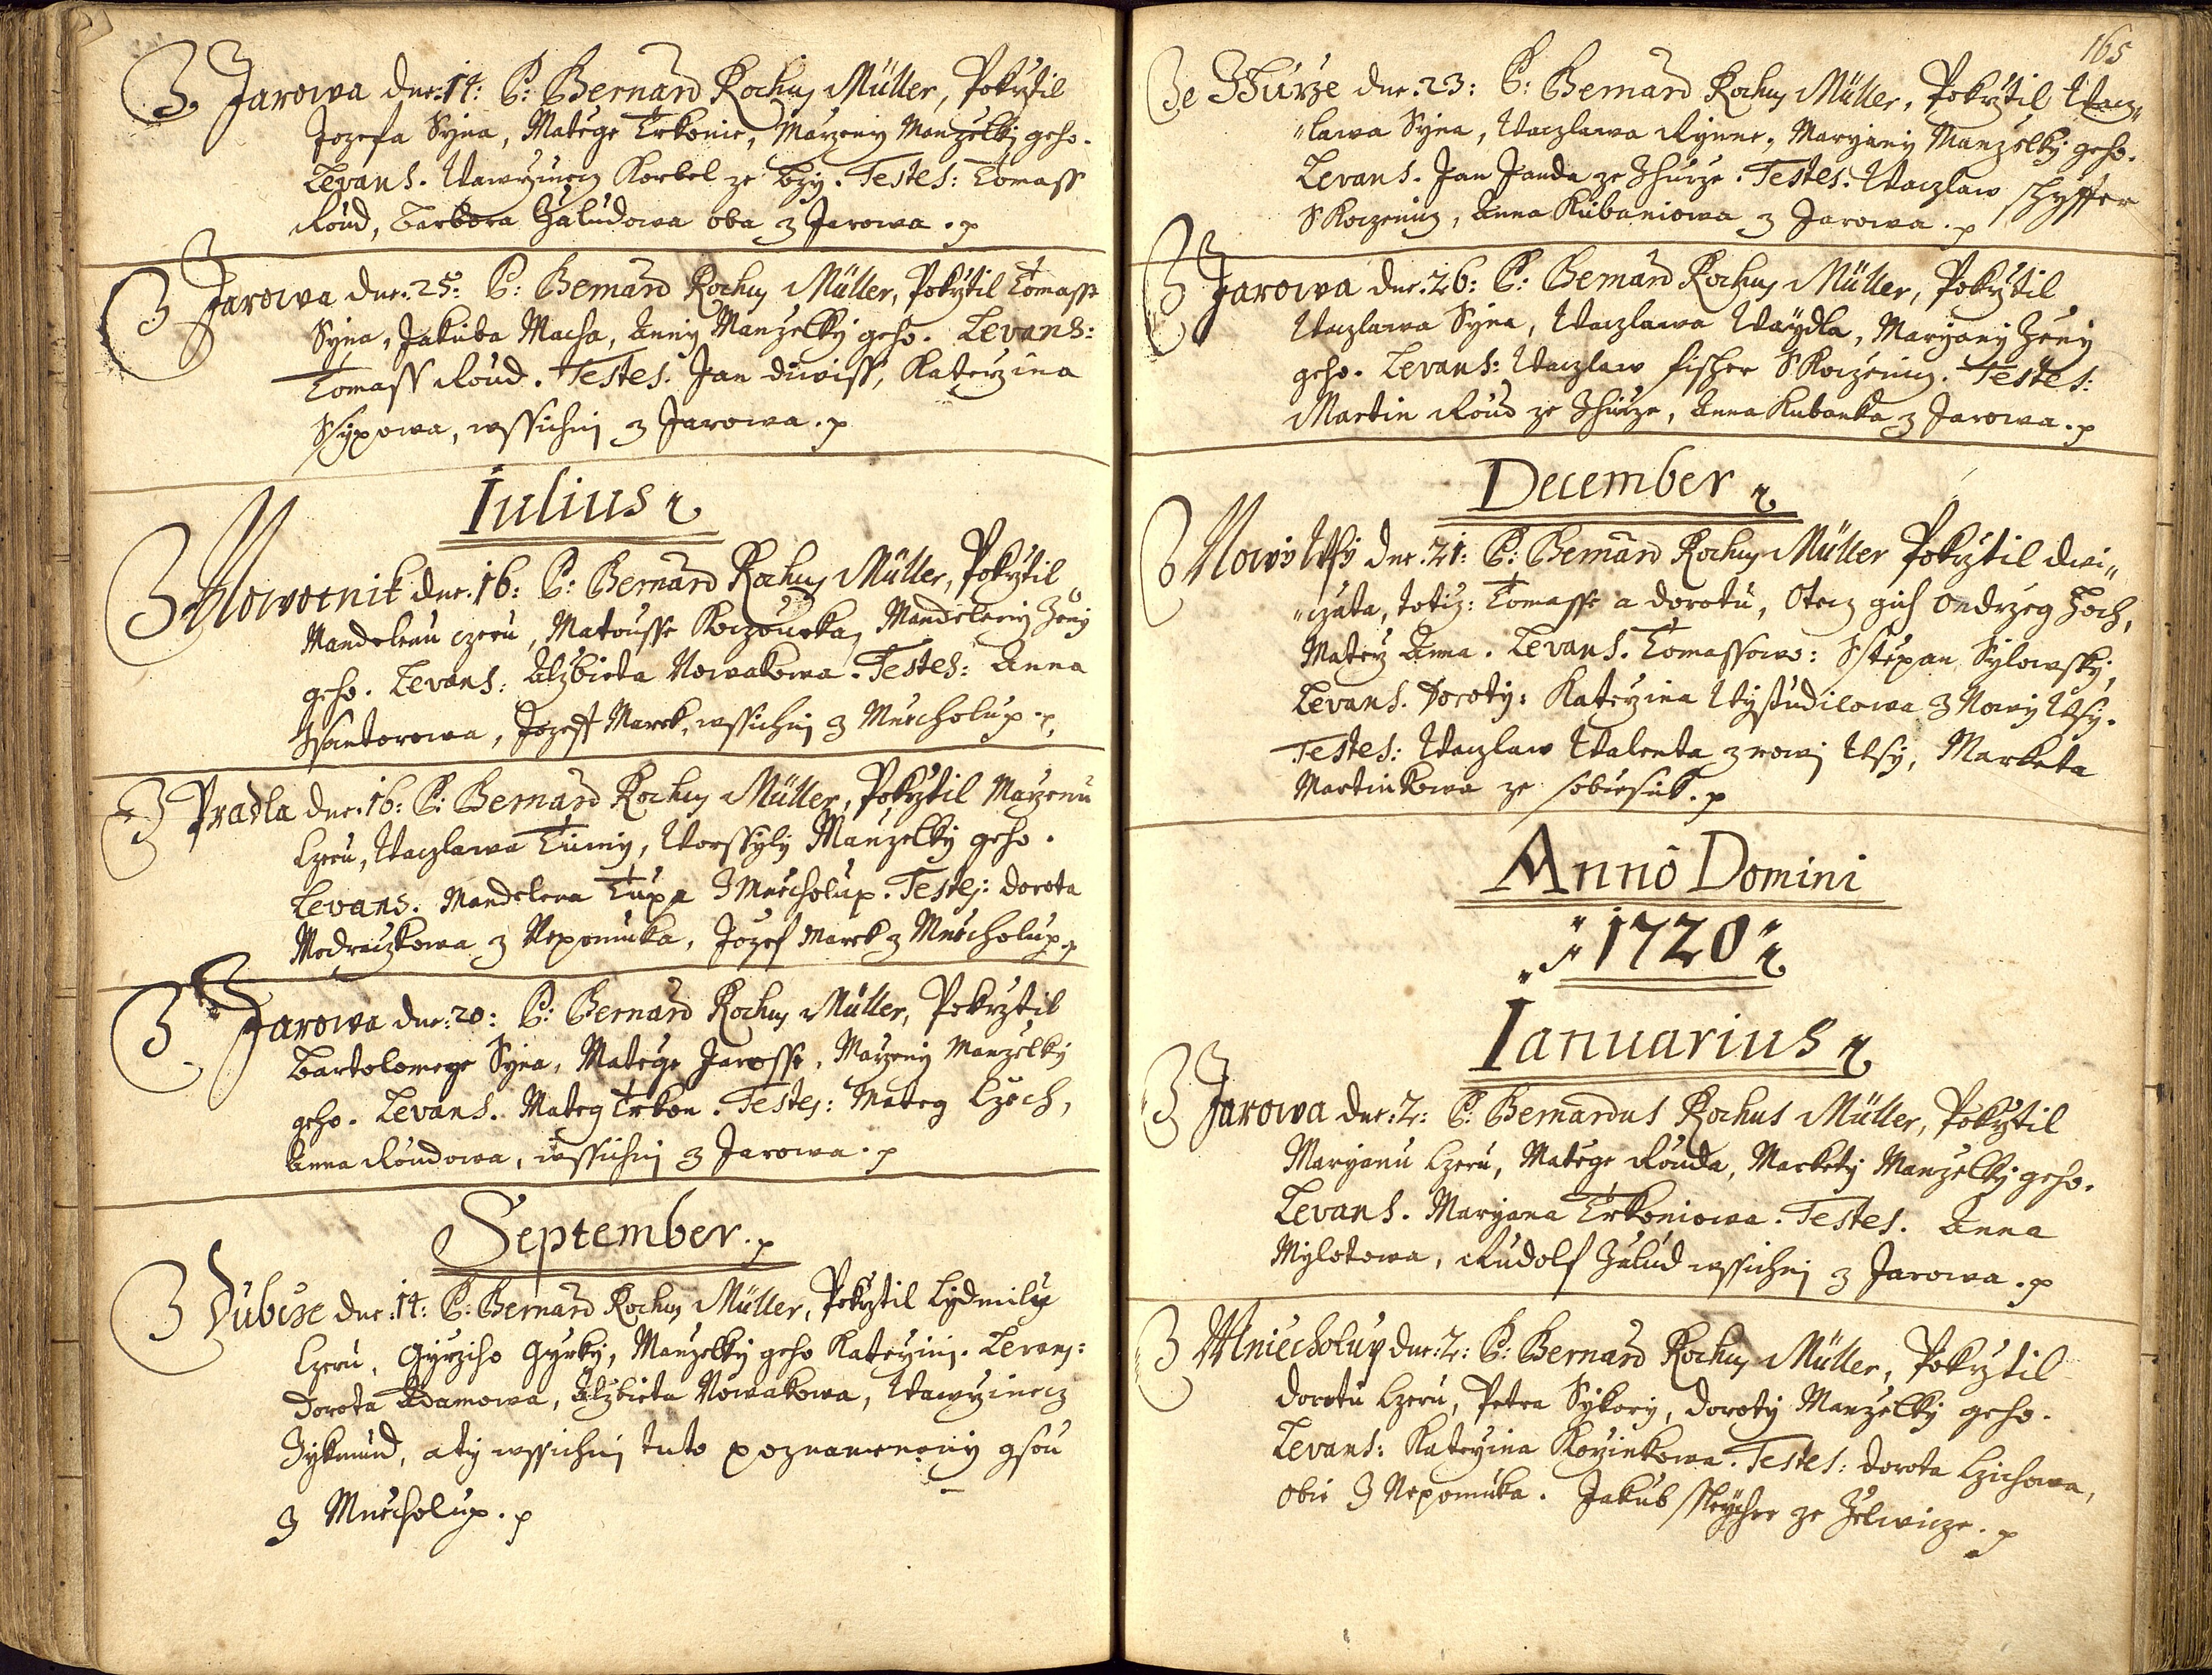 Z Jarowa dne: 14: P: Bernard Rochus Müller, Pokrztil
Jozefa Syna, Matege Trkonie, Marzeny Manzelky geho.
Levans. Wawrzinecz Korbel ze Lzy. Testes: Tomass
Roud, Barbora Zaludowa oba z Jarowa. p
Z Jarowa dne: 25: P: Bernard Rochus Müller, Pokrztil Tomasse
Syna, Jakuba Macha, Anny Manzelky geho. Levans:
Tomass Roud. Testes. Jan Diwiss, Katerzina
Ssypowa, wssichni z Jarowa. p
Iulius
Z Mowotnik dne: 16: P: Bernard Rochus Müller, Pokrztil
Mandelenu czeru, Matousse Koczourka, Mandeleny Zeny
geho. Levans: Alzbieta Nowakowa. Testes: Anna
Kantorowa, Jozeff Marek, wssichni z Mniecholup. p
Z Pradla dne: 16: P: Bernard Rochus Müller, Pokrztil Marzenu
Czeru, Waczlawa Tumy, Worssyly Manzelky geho.
Levans. Mandelena Tupa Z Mniecholup. Testes: Dorota
Modraczkowa z Nepomuka, Jozef Marek z Mniecholup. p
Z Jarowa dne: 20: P: Bernard Rochus Müller, Pokrztil
Bartolomege Syna, Matege Jarosse, Marzeny Manzelky
geho. Levans. Mateg Trkon. Testes: Mateg Czech,
Anna Roudowa, wssichni z Jarowa. p
September. p
Z Dubcze dne: 14: P: Bernard Rochus Müller, Pokrztil Lydmilu
Czeru, Gyrziho Gyrky, Manzelky geho Katerziny. Levans:
Dorota Adamowa, Alzbieta Nowakowa, Wawrzinecz
Zykmund, a ty wssichni tuto poznameneny gsou
z Mniecholup. p
165
Ze Zhurze dne: 23: P: Bernard Rochus Müller, Pokrztil Wacz„
„lawa Syna, Waczlawa Rynne, Maryany Manzelky geho.
Levans. Jan Janda ze Zhurze. Testes: Waczlaw Schyffer
S Koczenicz, Anna Kubaniowa z Jarowa. p
Z Jarowa dne: 26: P: Bernard Rochus Müller, Pokrztil
Waczlawa Syna, Waczlawa Waydla, Maryany Zeny
geho. Levans: Waczlaw fischer S Koczenicz. Testes:
Martin Roud ze Zhurze, Anna Kubanka z Jarowa. p
December
Z Nowy Wsy dne: 21: P: Bernard Rochus Müller Pokrztil dwi„
„czata, totiz: Tomasse a Dorotu, Otecz gich Ondrzeg Zoch,
Matez Anna. Levans. Tomassowo: Sstepan Sylowsky,
Levans. Doroty: Katerzina Wystudilowa z Nowy Wsy.
Testes: Waczlaw Walenta z nowy Wsy, Marketa
Martinkowa ze sobiesuk. p
Anno Domini
1720
Ianuarius
Z Jarowa dne: 2: P: Bernardus Rochus Müller, Pokrztil
Maryanu Czeru, Matege Rouda, Markety Manzelky geho.
Levans. Maryana Trkoniowa. Testes. Anna
Mylotowa, Rudolf Zalud wssichni z Jarowa. p
Z Mniecholup dne: 2: P: Bernard Rochus Müller, Pokrztil
Dorotu Czeru, Petra Sykory, Doroty Manzelky geho.
Levans: Katerzina Korzinkowa. Testes: Dorota Czichowa,
obie Z Nepomuka. Jakub Ssleycher ze Zelwicze. p